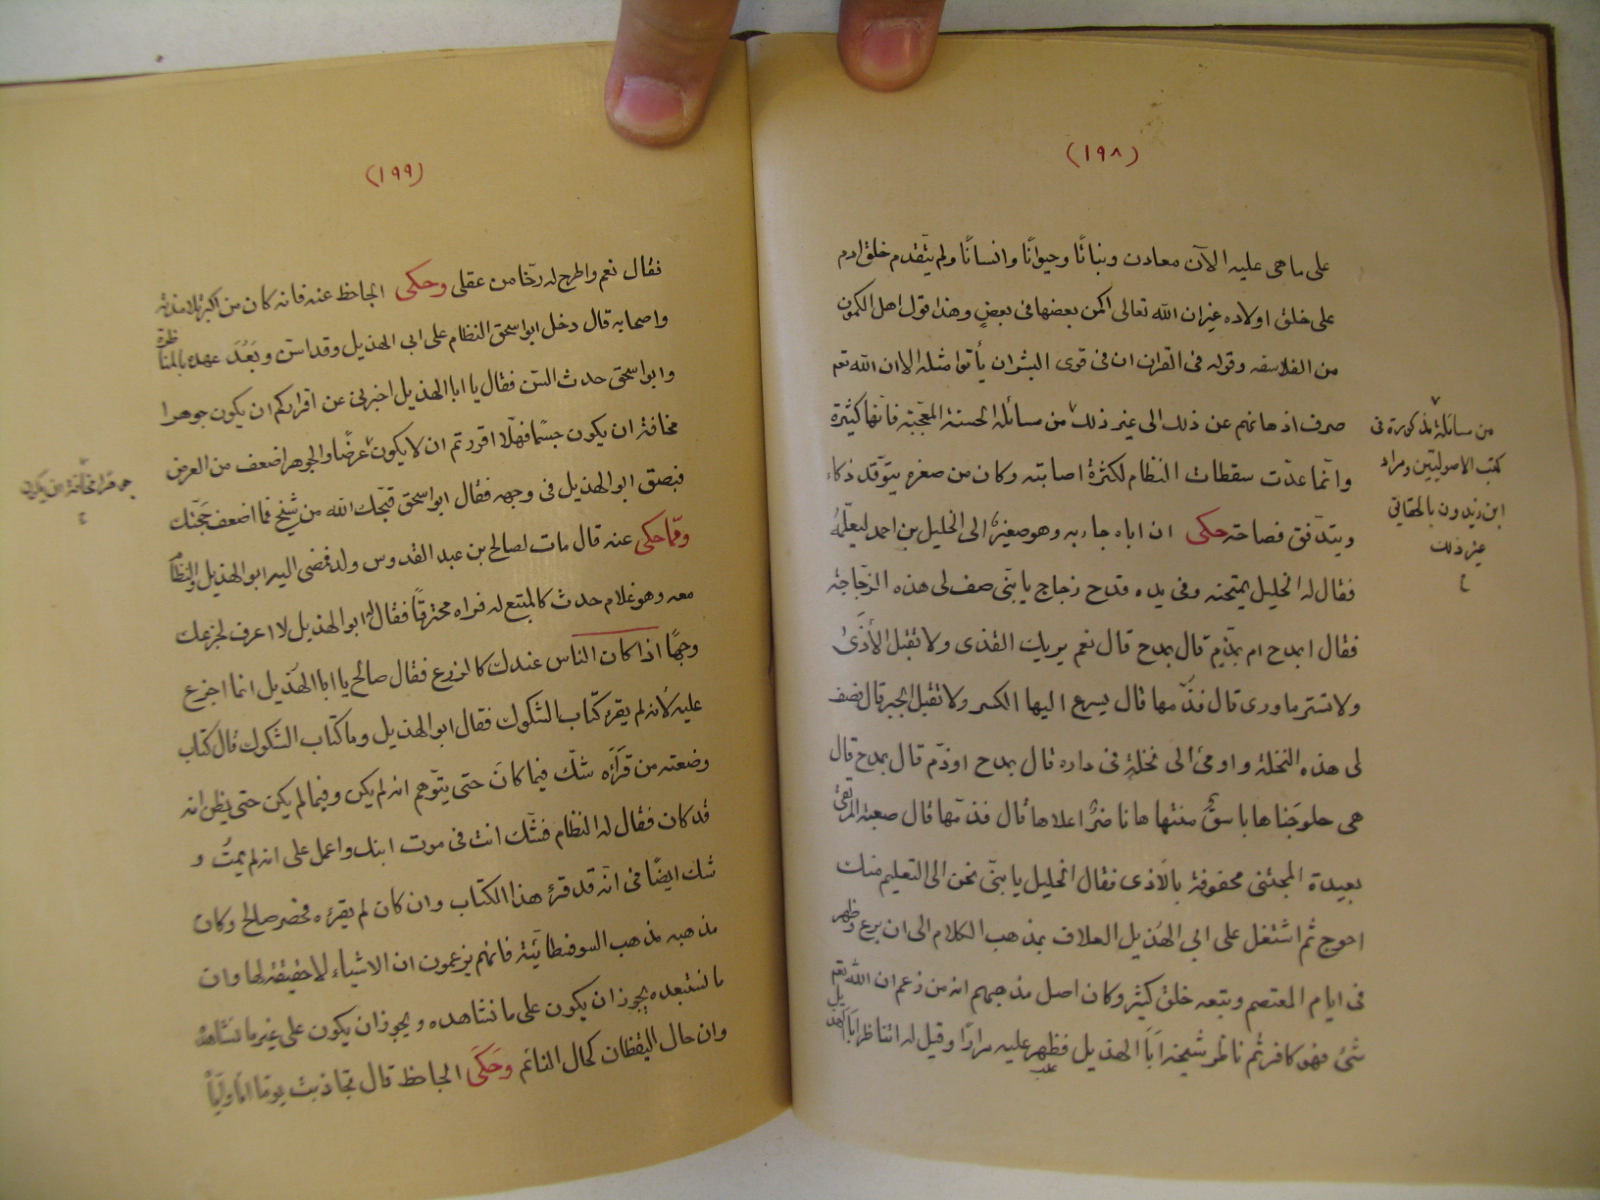 (١٩٨)
على ما هى عليه الآن معادن ونباتًا وحيوانًا وانسانًا ولم يتقدم خلق ادم
على خلق اولاده غير ان الله تعالى اكمن بعضها فى بعضٍ وهذا قول اهل الكمون
من الفلاسفه وقوله فى القران ان فى قوى البشر ان يأتوا مثله الا ان الله تعم
صرف اذهانهم عن ذلك الى غير ذلك من مسائله الحسنة المعجّبة فانها كثيرة
وانّما عدّت سقطات النظام لكثرة اصابته وكان من صغره يتوقد ذكاء
ويتدفق فصاحة حكى ان اباه جاء به وهو صغير الى الخليل بن احمد ليعلّمهُ
فقال له الخليل يمتحنه وفى يده قدح زجاج يا بنّى صف لى هذه الزجاجة
فقال ابمدح ام بذم قال بمدح قال نعم يريك القذى ولا تقبل الأذَىٰ
ولا تستر ماورى قال فذّمها قال يسرع اليها الكسر ولا تقبل الجبر قال فصف
لى هذه النخلة واومئ الى نخلة فى داره قال بمدح اوذم قال بمدح قال
هى حلو جَناها باسقٌ منتهاها ناضرٌ اعلاها قال فذمّها قال صعبة المرتقى
بعيدة المجتنى محفوفة بالأذى فقال الخليل يا بنّى نحن الى التعليم منك
احوج ثم اشتغل على ابى الهُذيل العلاف بمذهب الكلام الى ان برع وظهر
فى ايام المعتصم وتبعه خلق كثير وكان اصل مذهبهم انه من زعم ان الله تعم
شئ فهو كافر ثم ناظر شيخه اَبَا الهذيل فظهر عليه مرارًا وقيل له اتناظر ابَا الهذيل
من مسائلة مذكورة فى
كتب الاصوليّين ومراد
ابن زيدون بالحقايق
غير ذلك
(١٩٩)
فقال نعم واطرح له رخّا من عقلى وحكى الجاحظ عنه فانه كان من اكبر تلامذته
واصحابه قال دخل ابو اسحق النظام على ابى الهذيل وقد اسن وبَعُدَ عهده بالمناظرة
وابو اسحق حدث السن فقال يا ابا الهذيل اخبرنى عن اقراركم ان يكون جوهرا
مخافة ان يكون جسًما فهلّا اقررتم ان لا يكون عرضًا والجوهر اضعف من العرض
فبصق ابو الهذيل فى وجهه فقال ابو اسحق قبّحك الله من شيخ فما اضعف حجّتك
وممّا حكى عنه قال مات لصالح بن عبد القدوس ولد فمضى اليه ابو الهذيل والنظام
معه وهو غلام حدث كالمتبع له فراه محترقًا فقال ابو الهذيل لا اعرف لجزعك
وجهًا اذا كان الناس عندك كالزرع فقال صالح يا ابا الهُذيل انما اجزع
عليه لأنه لم يقره كتاب الشكوك فقال ابو الهذيل وما كتاب الشكوك قال كتاب
وضعته من قرَاَءه شك فيما كانَ حتى يتوّهم انه لم يكن وفيما لم يكن حتى يظن انه
قد كان فقال له النظام فشّك انت فى موت ابنك واعمل على انه لم يمتُ و
شك ايضًا فى انّه قد قرئ هذا الكتاب وان كان لم يقرءه فحصر صالح وكان
مذهبه مذهب السوفسطائيّة فانهم يزعمون ان الاشياء لا حقيقة لها وان
ما نستبعده يجوز ان يكون على ما نشاهده ويجوز ان يكون على غير ما نشَاهدُ
وان حال اليقظان كحال النائم وحَكَى الجاحظ قال تجاذبت يومًا انا